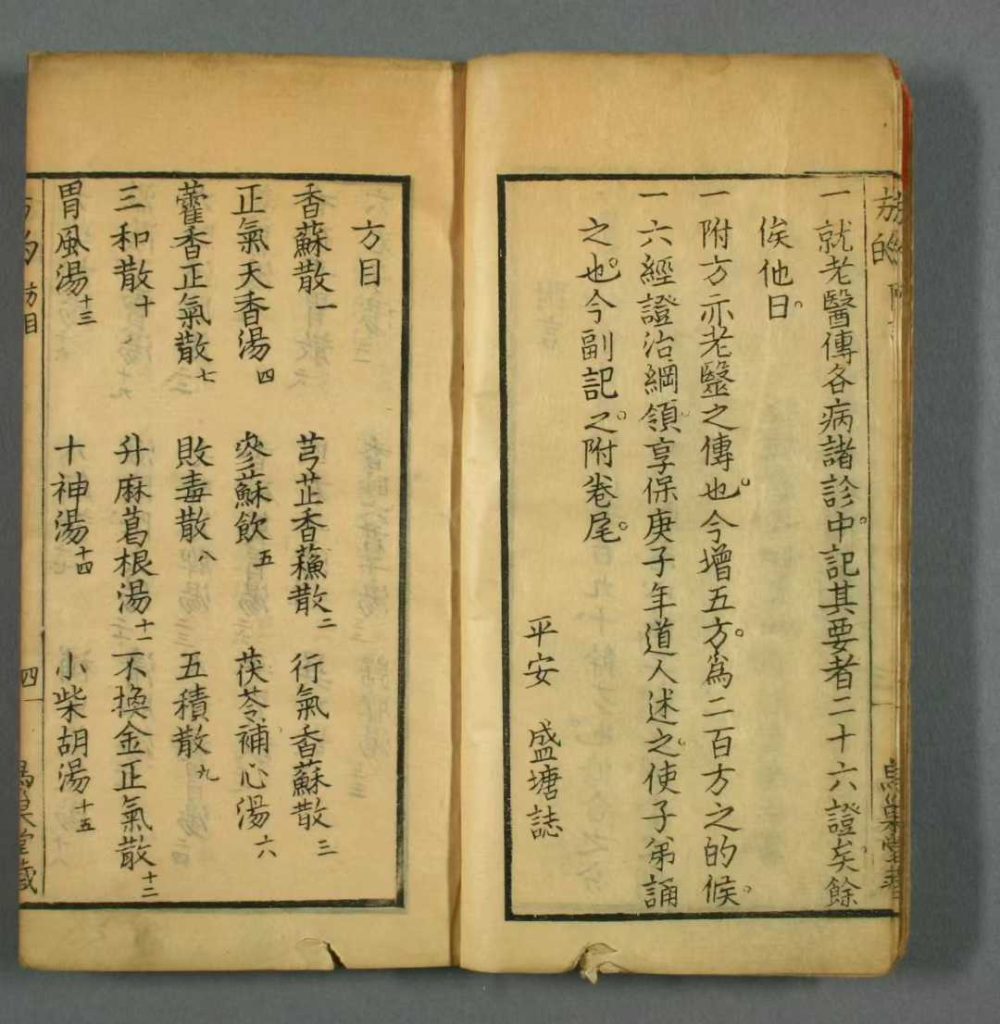 一就老醫傳各病諸診中。記其要者二十六證矣。餘
俟他日。
一附方亦老毉之傳也。今增五方。爲二百方之的候。
一六經證治綱領。享保庚子年道人述之。使子弟誦
之也。今副記之。附卷尾。
平安 盛塘誌
方目
香蘇散一 芎芷香蘓散二 行氣香蘇散三
正氣天香湯四 參蘇飲五 茯苓補心湯六
藿香正氣散七 敗毒散八 五積散九
三和散十 升麻葛根湯十一 不換金正氣散十二
胃風湯十三 十神湯十四 小柴胡湯十五
方目
四